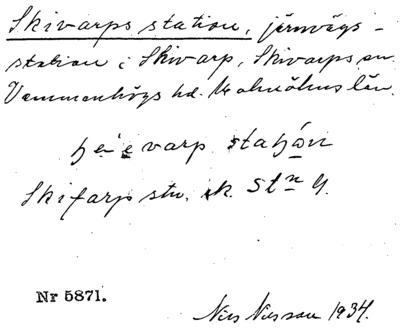 Skivarps station, järnvägs-
station i Skivarp, Skivarps sn.
Vemmenhögs hd. Malmöhus län.
varp
Skifarp stn. sk.
Nr 5871.
Nils Nilsson 1934.